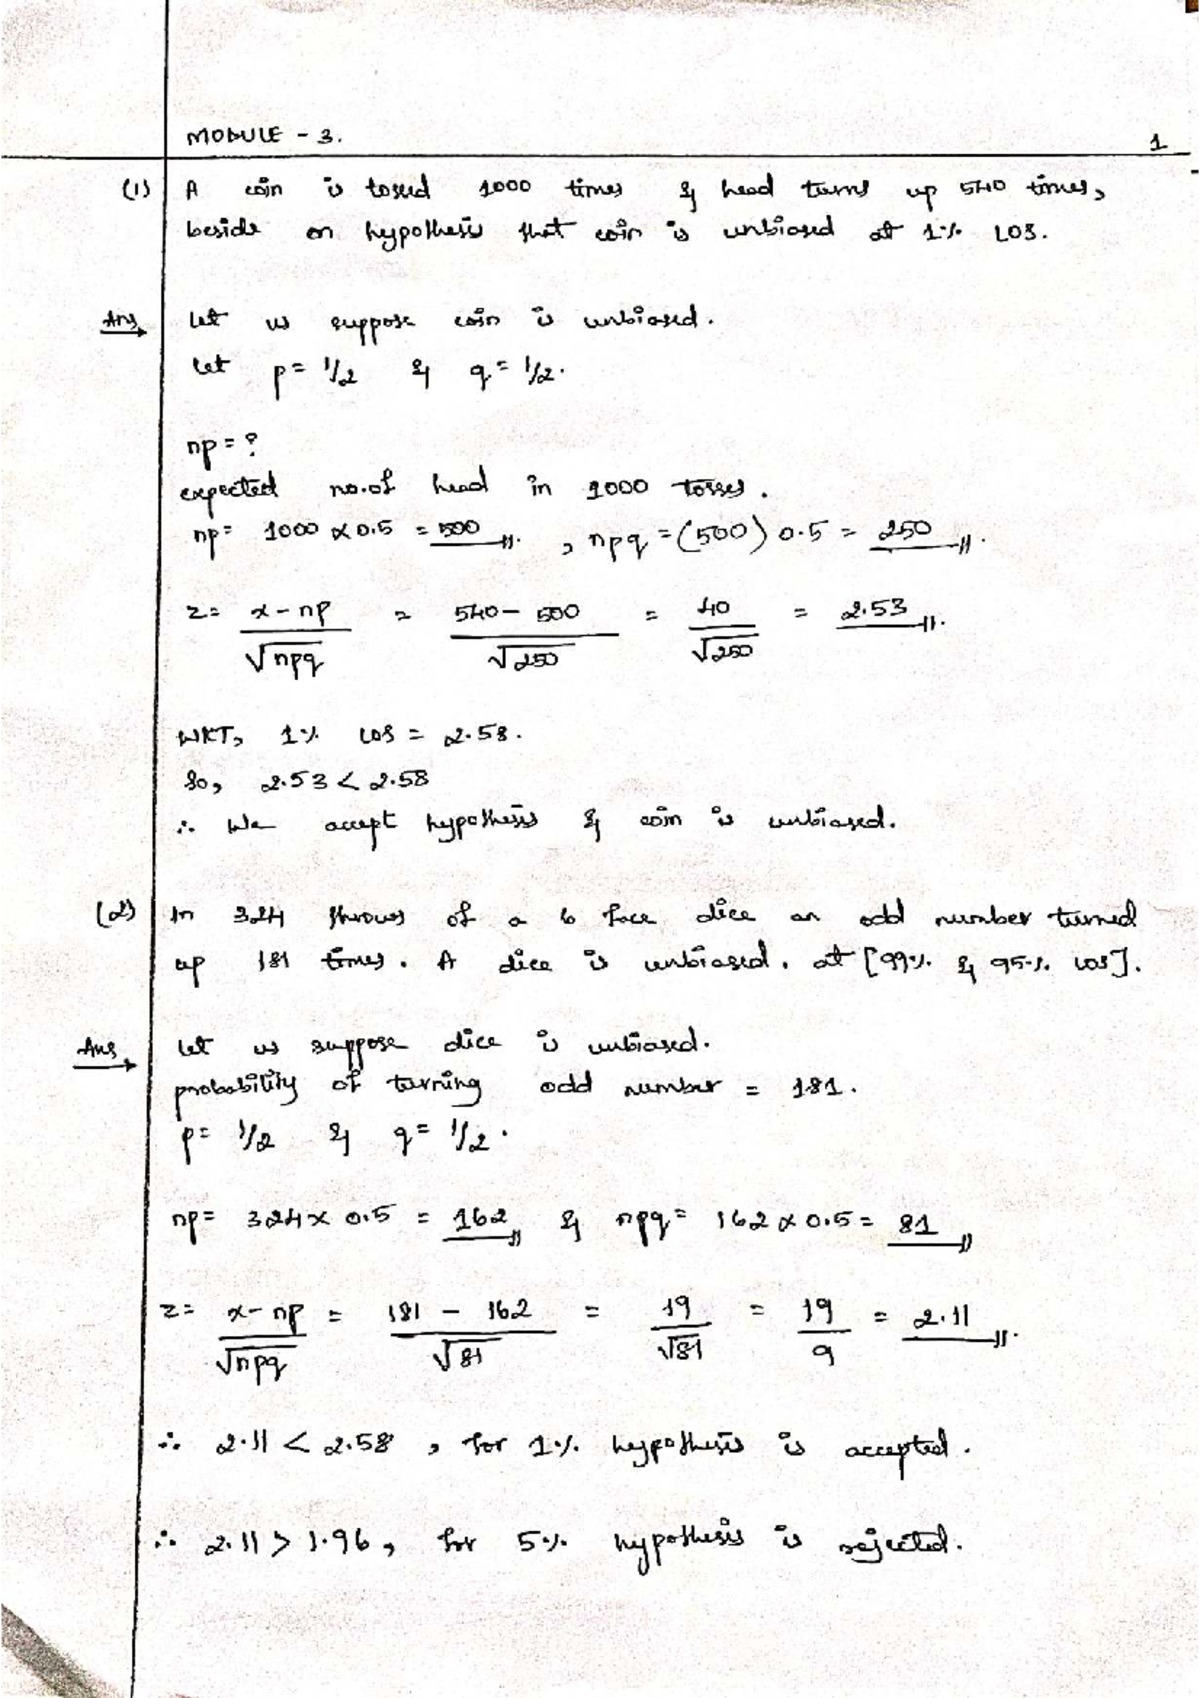 MODULE - 3.
1
(1) A coin is tossed 1000 times & head turns up 540 times,
beside on hypothesis that coin is unbiased at 1% LOS.
Ans Let us suppose coin is unbiased.
Let p = 1/2 & q = 1/2.
np = ?
expected no.of head in 1000 tosses.
np = 1000 x 0.5 = 500 , npq = (500) 0.5 = 250
z = x - np / √npq = 540 - 500 / √250 = 40 / √250 = 2.53
WKT, 1% LOS = 2.58.
So, 2.53 < 2.58
∴ We accept hypothesis & coin is unbiased.
(2) In 324 throws of a 6 face dice an odd number turned
up 181 times. A dice is unbiased. at [99% & 95% LOS].
Ans Let us suppose dice is unbiased.
probability of turning odd number = 181.
p = 1/2 & q = 1/2.
np = 324 x 0.5 = 162 & npq = 162 x 0.5 = 81
z = x - np / √npq = 181 - 162 / √81 = 19 / √81 = 19 / 9 = 2.11
∴ 2.11 < 2.58 , for 1% hypothesis is accepted.
∴ 2.11 > 1.96, for 5% hypothesis is rejected.